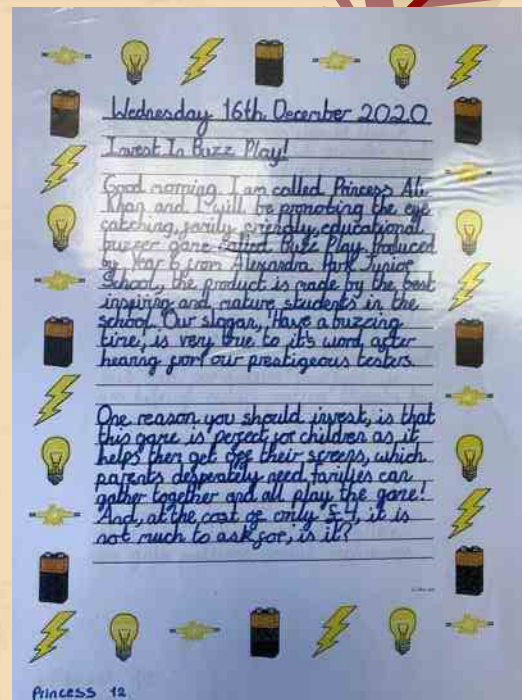 Wednesday 16th December 2020
Invest In Buzz Play!
Good morning, I am called Princess Ali
Khan and I will be promoting the eye
catching, family friendly, educational
buzzer game called Buzz Play. Produced
by Year 6 from Alexandra Park Junior
School, the product is made by the best
inspiring and mature students in the
school. Our slogan, 'Have a buzzing
time', is very true to it's word, after
hearing from our prestigeous testers.
One reason you should invest, is that
this game is perfect for children as it
helps them get off their screens, which
parents desperately need, families can
gather together and all play the game!
And, at the cost of only £4, it is
not much to ask for, is it?
Princess 12